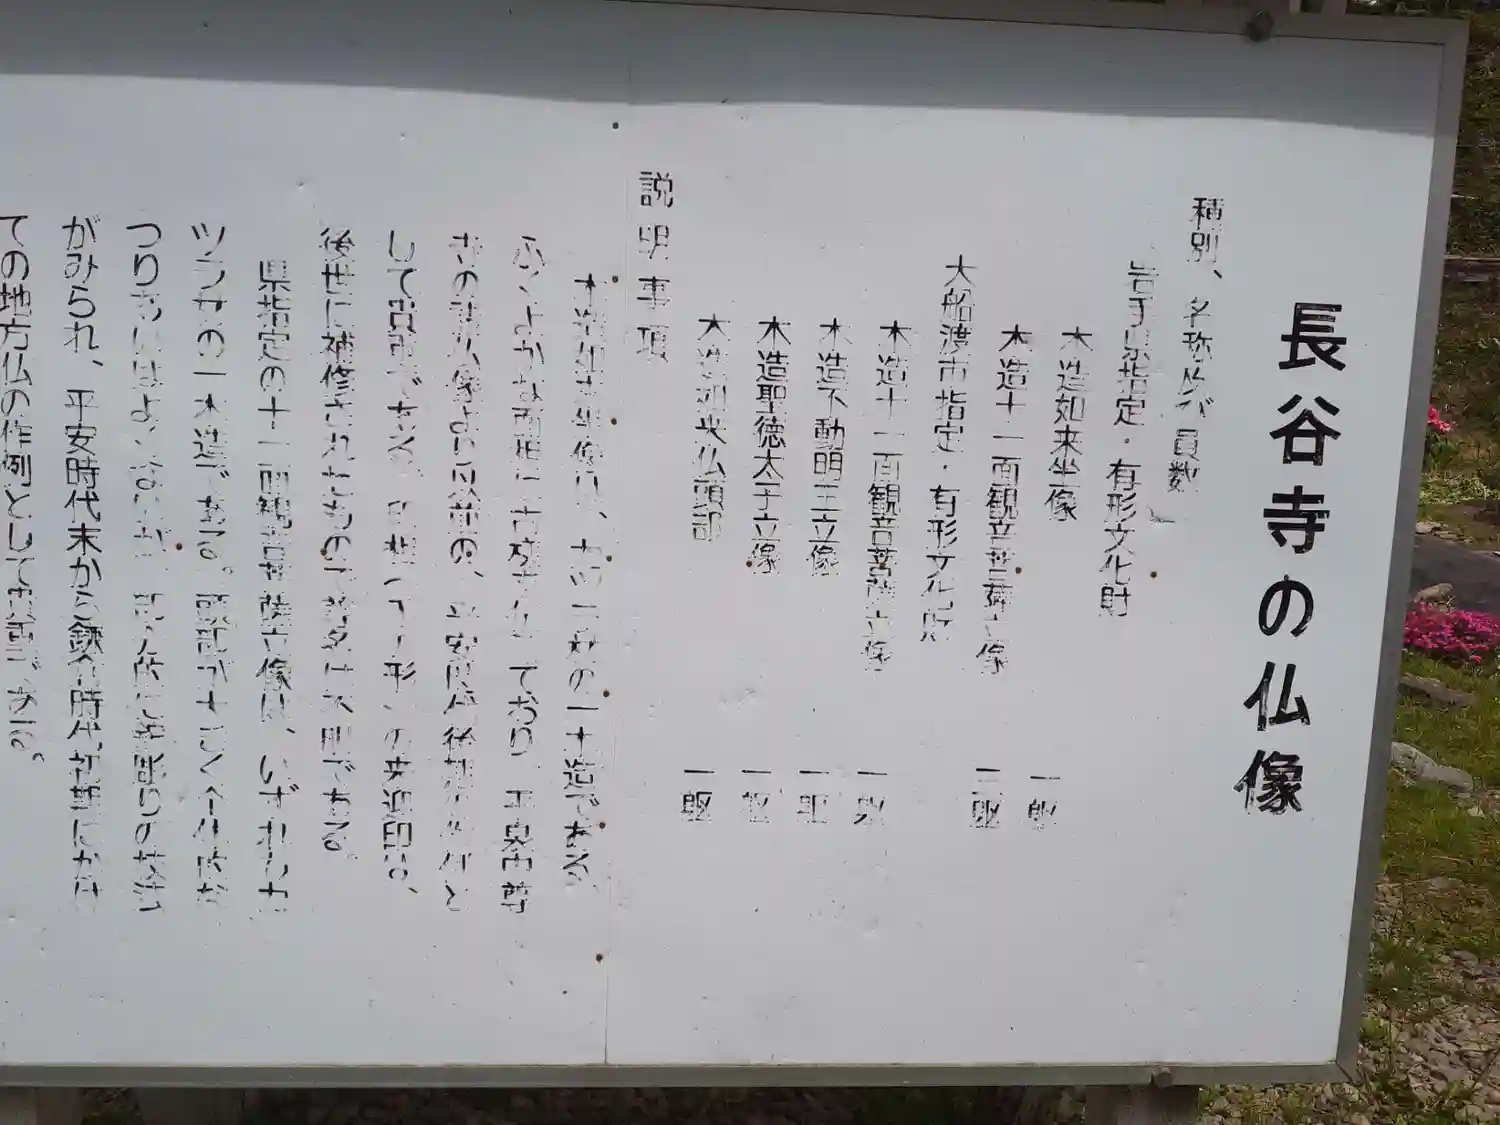 長谷寺の仏像
種別、名称及び員数
岩手県指定・有形文化財
木造如来坐像 一躯
木造十一面観音菩薩立像 一躯
大船渡市指定・有形文化財
木造十一面観音菩薩立像 一躯
木造不動明王立像 一躯
木造聖徳太子立像 一躯
木造如来仏頭部 一躯
説明事項
木造如来坐像は、カツラ材の一木造である。
ふくよかな面相に古様を伝えており、平泉中尊
寺の諸仏像より以前の、平安時代後期の作例と
して貴重である。印相
の来迎印は、
後世に補修されたもので尊名は不明である。
県指定の十一面観音菩薩立像は、いずれもカ
ツラ材の一木造である。頭部が大きく
つりあいはよくないが、
彫りの技法
がみられ、平安時代末から鎌倉時代初期にかけ
ての地方仏の作例として貴重である。